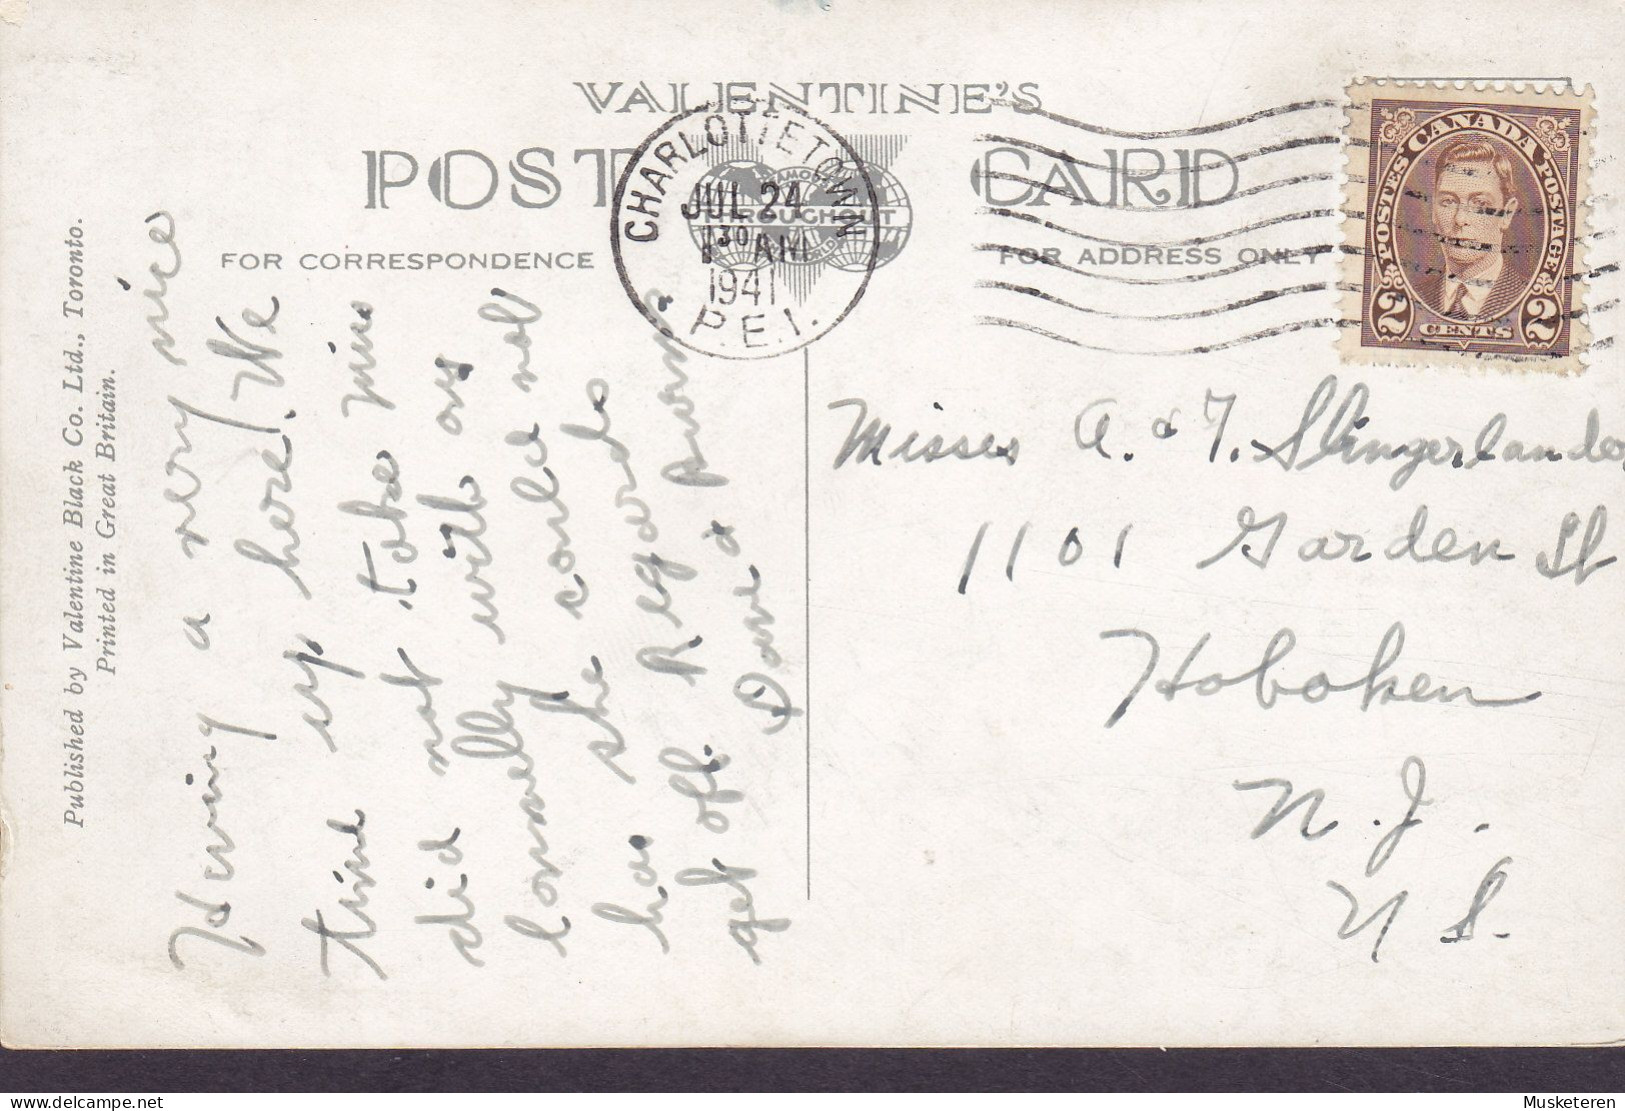 VALENTINE'S
POST CARD
FAMOUS
THROUGHOUT
WORLD
FOR CORRESPONDENCE
FOR ADDRESS ONLY
CHARLOTTETOWN
JUL 24
30 AM
1941
P.E.I.
CANADA
POSTES POSTAGE
2 CENTS 2
Published by Valentine Black Co. Ltd., Toronto.
Printed in Great Britain.
Having a very nice
time up here. We
did not take mis
lonnelly with us
as she could not
has Regards
get off.
Dave &
Misses A. & T. Slingerlander
1101 Garden St
Hoboken
N.J.
U.S.
Musketeren
delcampe.net